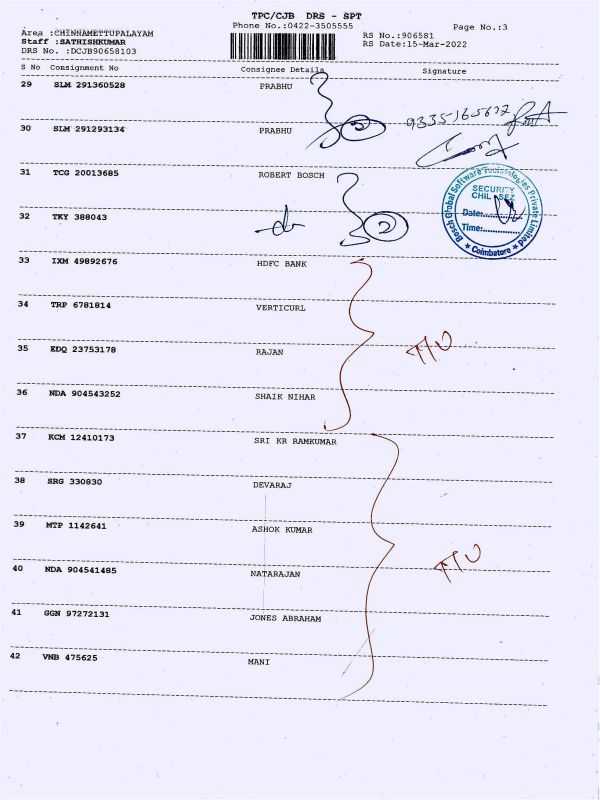 TPC/CJB DRS - SPT
Phone No.:0422-3505555 Page No.:3
Area :CHINNAMETTUPALAYAM
Staff :SATHISHKUMAR
DRS No. :DCJB90658103
RS No.:906581
RS Date:15-Mar-2022
S No Consignment No Consignee Details Signature
29 SLM 291360528 PRABHU
30 SLM 291293134 PRABHU
31 TCG 20013685 ROBERT BOSCH
32 TKY 388043
2
2
Bosch Global Software Technologies Private Limited
SECURITY
CHIL SEZ
Date:
Time:
Coimbatore
33 IXM 49892676 HDFC BANK
34 TRP 6781814 VERTICURL
35 EDQ 23753178 RAJAN
36 NDA 904543252 SHAIK NIHAR
37 KCM 12410173 SRI KR RAMKUMAR
38 SRG 330830 DEVARAJ
39 MTP 1142641 ASHOK KUMAR
40 NDA 904541485 NATARAJAN
41 GGN 97272131 JONES ABRAHAM
42 VNB 475625 MANI